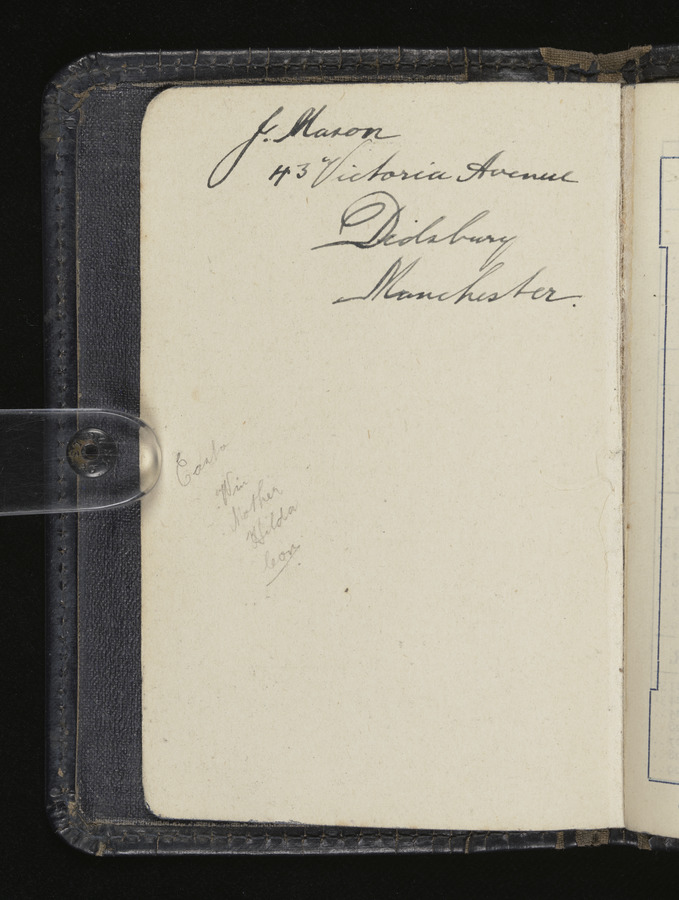 J. Mason
43 Victoria Avenue
Didsbury
Manchester.
Win
Mother
Hilda